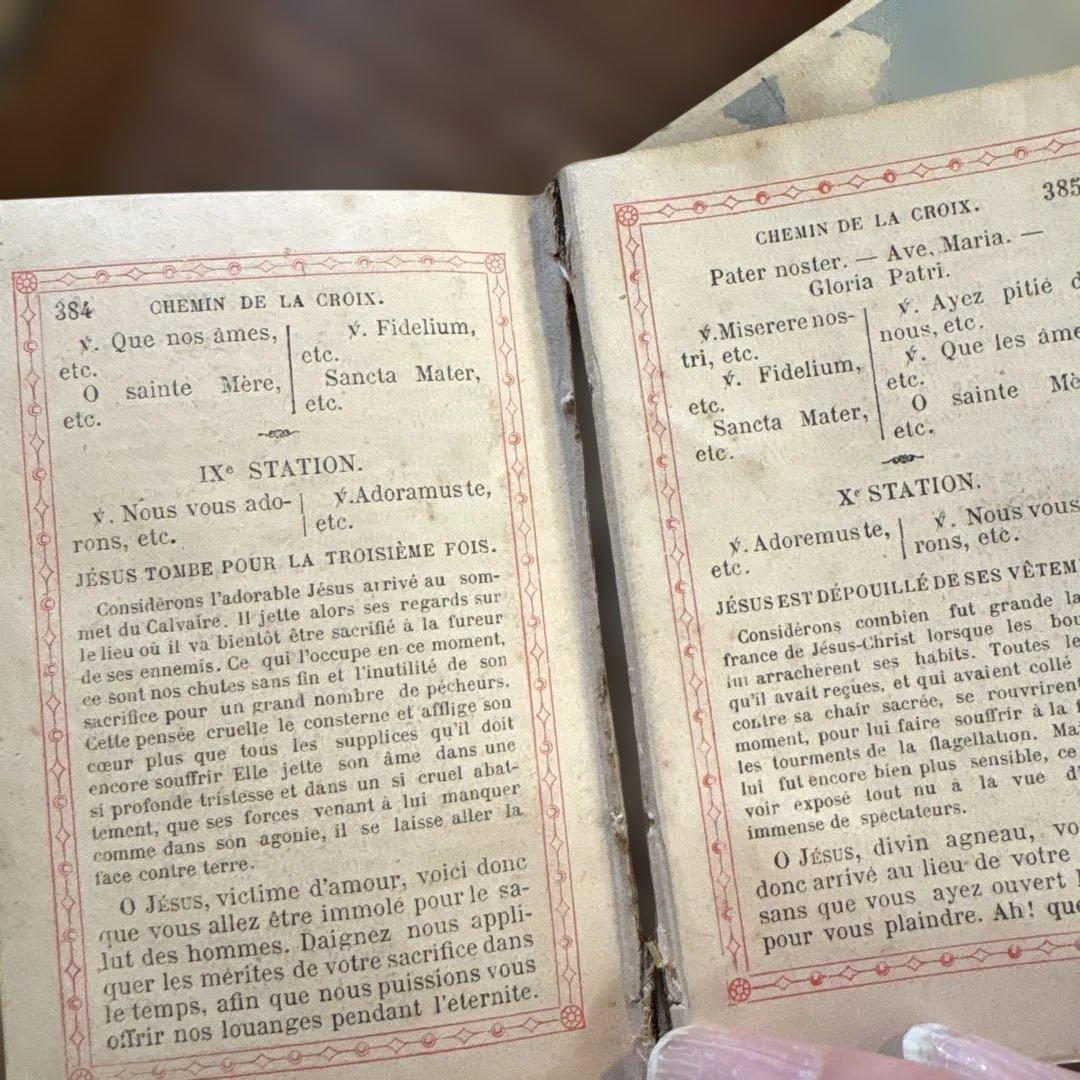 384 CHEMIN DE LA CROIX.
℣. Que nos âmes,
etc.
O sainte Mère,
etc.
℣. Fidelium,
etc.
Sancta Mater,
etc.
IXe STATION.
℣. Nous vous ado-
rons, etc.
℣. Adoramus te,
etc.
JÉSUS TOMBE POUR LA TROISIÈME FOIS.
Considérons l'adorable Jésus arrivé au som-
met du Calvaire. Il jette alors ses regards sur
le lieu où il va bientôt être sacrifié à la fureur
de ses ennemis. Ce qui l'occupe en ce moment,
ce sont nos chutes sans fin et l'inutilité de son
sacrifice pour un grand nombre de pécheurs.
Cette pensée cruelle le consterne et afflige son
cœur plus que tous les supplices qu'il doit
encore souffrir Elle jette son âme dans une
si profonde tristesse et dans un si cruel abat-
tement, que ses forces venant à lui manquer
comme dans son agonie, il se laisse aller la
face contre terre.
O JÉSUS, victime d'amour, voici donc
que vous allez être immolé pour le sa-
lut des hommes. Daignez nous appli-
quer les mérites de votre sacrifice dans
le temps, afin que nous puissions vous
offrir nos louanges pendant l'éternite.
CHEMIN DE LA CROIX. 385
Pater noster. — Ave, Maria. —
Gloria Patri.
℣. Miserere nos-
tri, etc.
℣. Fidelium,
etc.
Sancta Mater,
etc.
℣. Ayez pitié d
nous, etc.
℣. Que les âme
etc.
O sainte Mè
etc.
Xe STATION.
℣. Adoremus te,
etc.
℣. Nous vous
rons, etc.
JÉSUS EST DÉPOUILLÉ DE SES VÊTEM
Considérons combien fut grande la
france de Jésus-Christ lorsque les bou
lui arrachèrent ses habits. Toutes le
qu'il avait reçues, et qui avaient collé
contre sa chair sacrée, se rouvrirent
moment, pour lui faire souffrir à la f
les tourments de la flagellation. Ma
lui fut encore bien plus sensible, ce
voir exposé tout nu à la vue d'
immense de spectateurs.
O JÉSUS, divin agneau, vo
donc arrivé au lieu de votre
sans que vous ayez ouvert l
pour vous plaindre. Ah! que